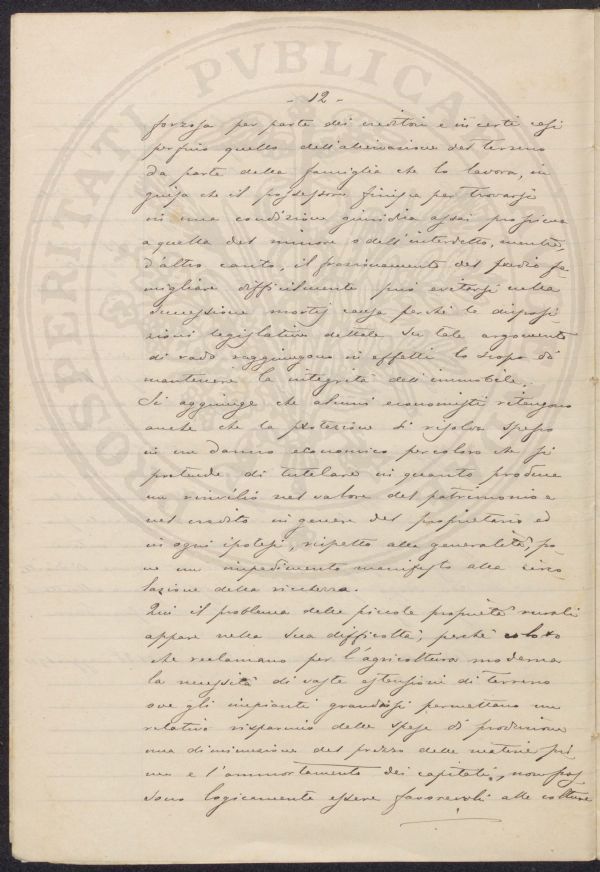 - 12 -
forzosa per parte dei creditori e in certi casi
perfino quello dell'alienazione del terreno
da parte della famiglia che lo lavora, in
guisa che il possessore finisca per trovarsi
in una condizione giuridica assai prossima
a quella del minore o dell'interdetto, mentre
d'altro canto, il frazionamento del predio fa-
migliare difficilmente può evitarsi nella
successione mortis causa perchè le disposi-
zioni legislative dettate su tale argomento
di rado raggiungono in effetti lo scopo di
mantenere la integrità dell'immobile.
Si aggiunge che alcuni economisti ritengono
anche che la protezione si risolva spesso
in un danno economico per coloro che si
pretende di tutelare in quanto produce
un rinvilio nel valore del patrimonio e
nel credito in genere del proprietario ed
in ogni ipotesi, rispetto alla generalità, po-
ne un impedimento manifesto alla circo
lazione della ricchezza.
Qui il problema delle piccole proprietà rurali
appare nella sua difficoltà, perchè coloro
che reclamano per l'agricoltura moderna
la necessità di vaste estensioni di terreno
ove gli impianti grandiosi permettano un
relativo risparmio delle spese di produzione
una diminuzione del prezzo delle materie pri
me e l'ammortamento dei capitali, non pos
sono logicamente essere favorevoli alle colture
PROSPERITATI PVBLICAE